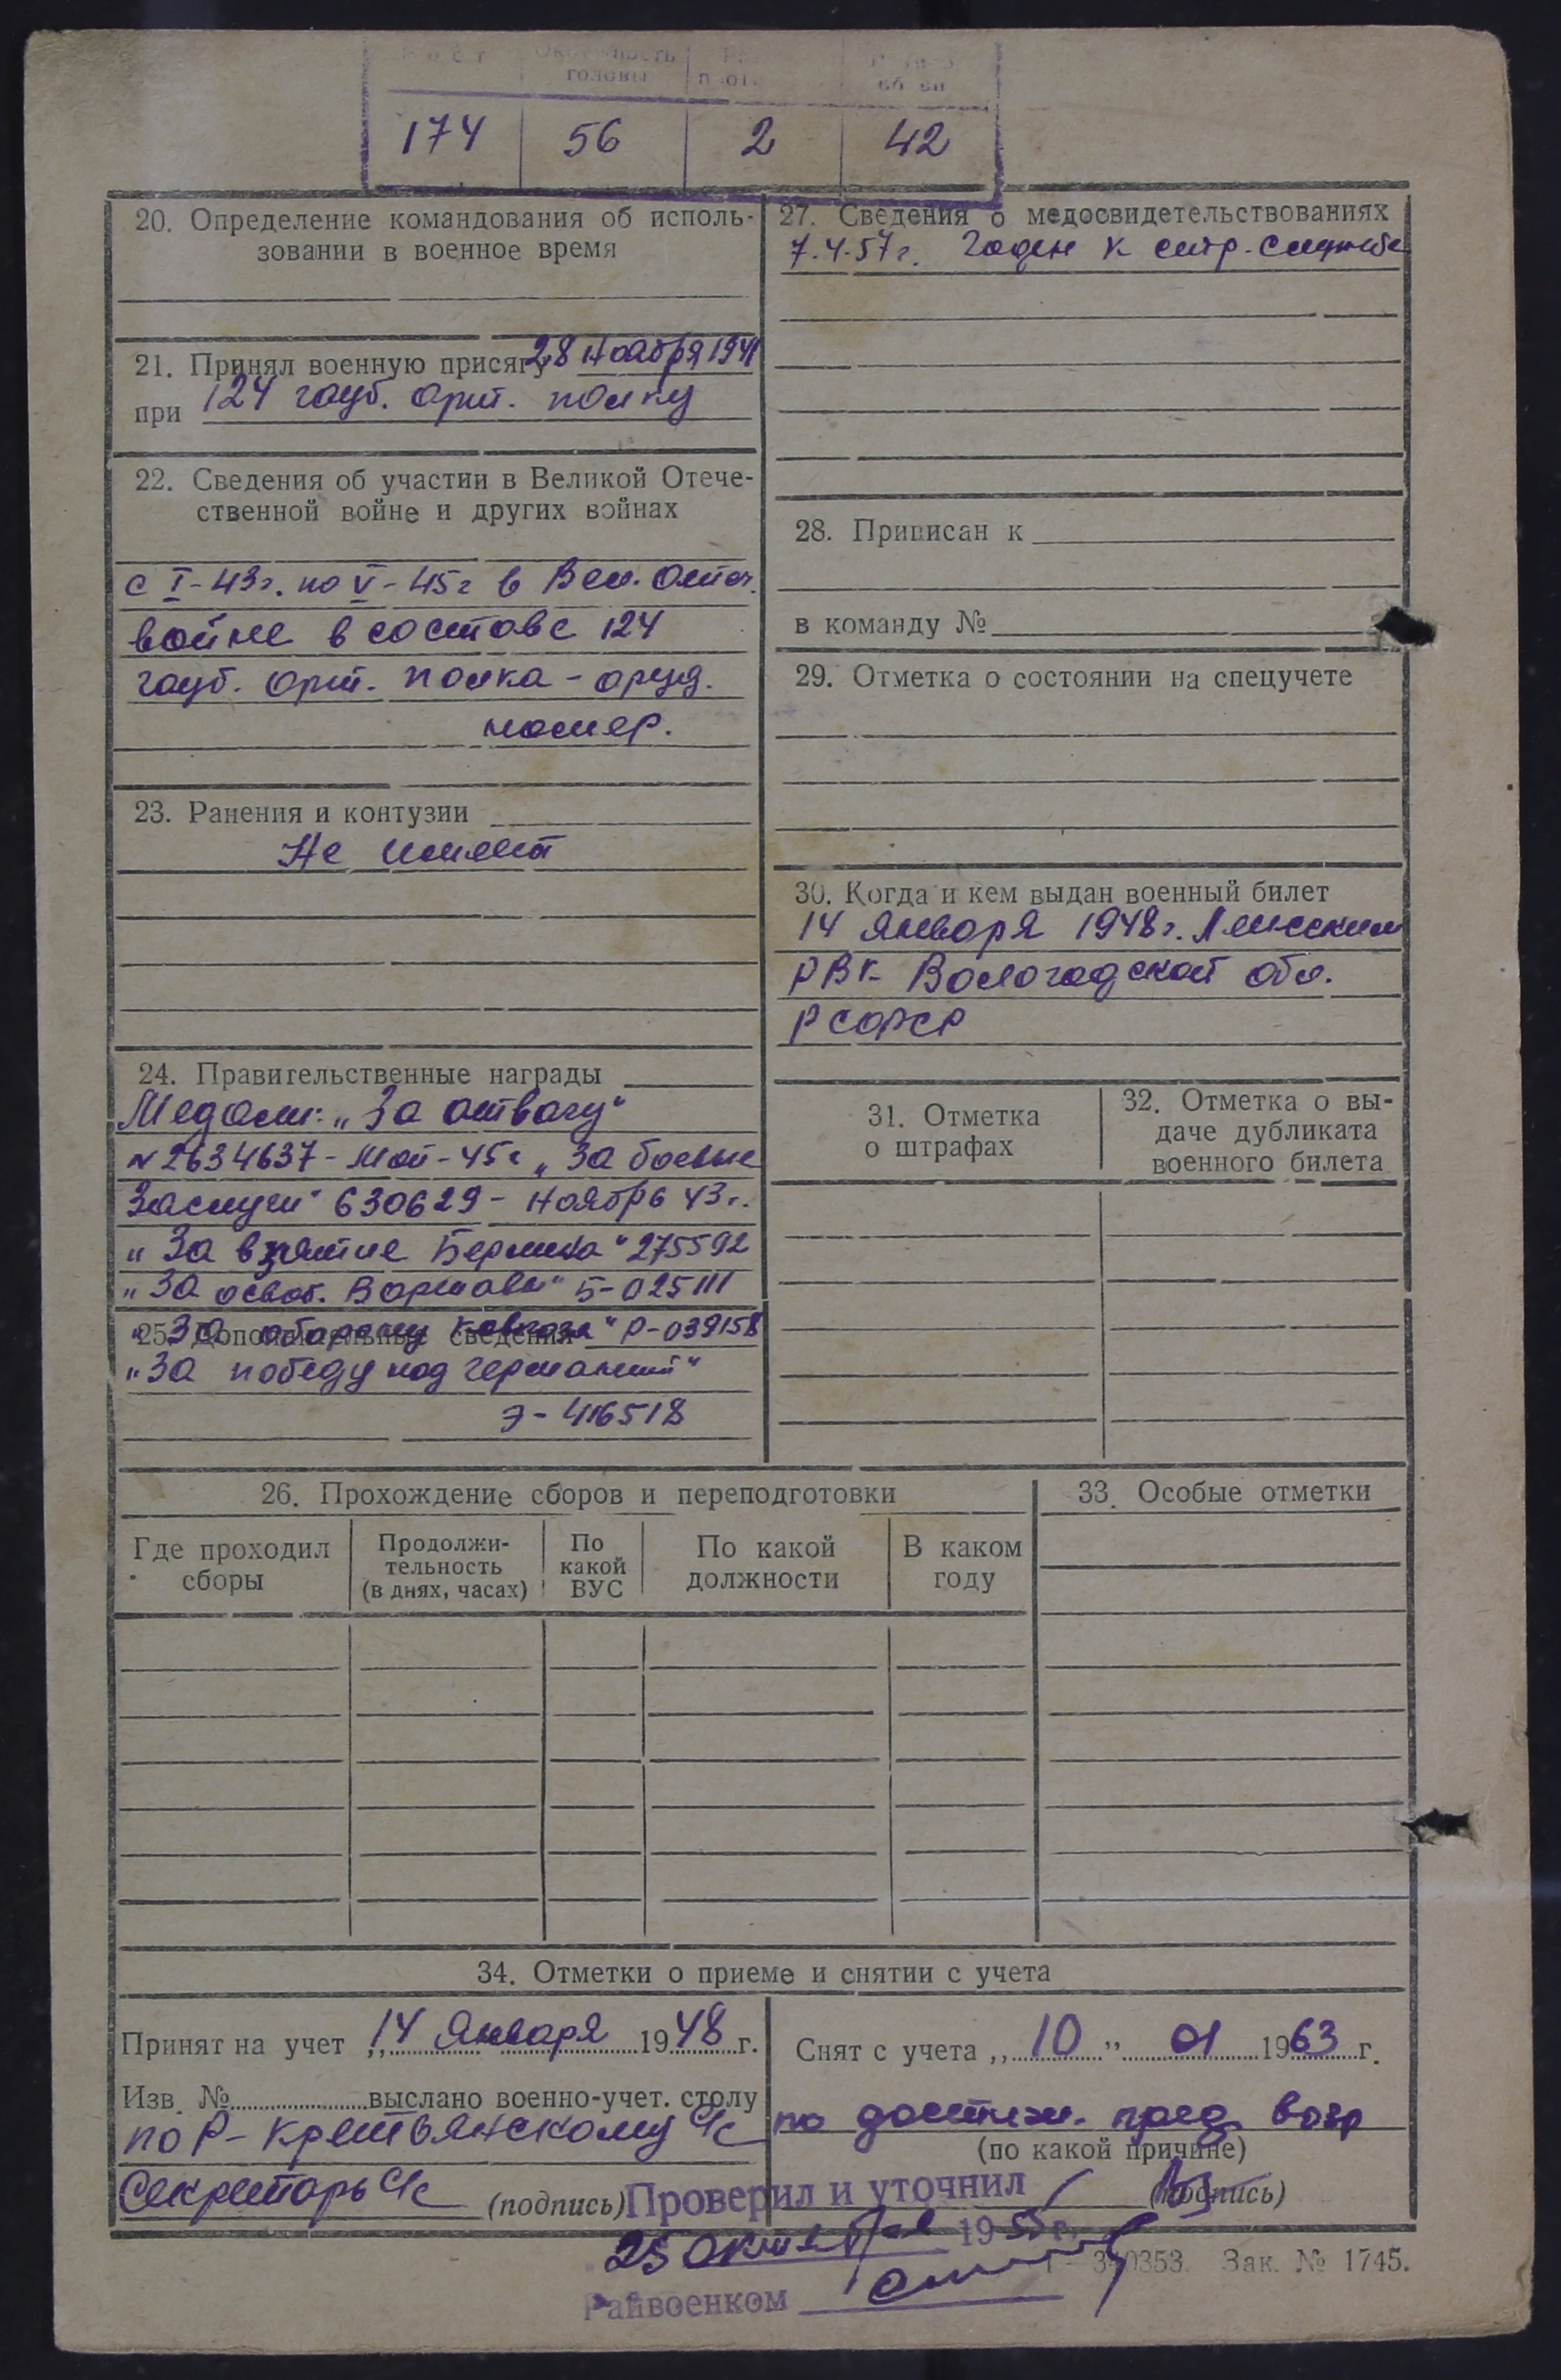 головы
174 56 2 42
20. Определение командования об исполь-
зовании в военное время
21. Принял военную присягу 28 ноября 1941
при 124 гауб. арт. полку
22. Сведения об участии в Великой Отече-
ственной войне и других войнах
с I-43г. по V-45г в Вел. Отеч.
войне в составе 124
гауб. арт. полка - оруд.
номер.
23. Ранения и контузии
Не имеет
24. Правительственные награды
Медали: „За отвагу“
№ 2634637 - Май - 45г „За боевые
Заслуги“ 630629 - ноябрь 43г.
„За взятие Берлина“ 275592
„За освоб. Варшавы“ Б-025111
25. Дополнительные сведения
„За оборону Кавказа“ Р-039158
„За победу над германией“
Э-416518
27. Сведения о медосвидетельствованиях
7.4.57г. Годен к стр. службе
28. Приписан к
в команду №
29. Отметка о состоянии на спецучете
30. Когда и кем выдан военный билет
14 января 1948г.
РВК Вологодской обл.
РСФСР
31. Отметка
о штрафах
32. Отметка о вы-
даче дубликата
военного билета
26. Прохождение сборов и переподготовки
Где проходил
сборы
Продолжи-
тельность
(в днях, часах)
По
какой
ВУС
По какой
должности
В каком
году
33. Особые отметки
34. Отметки о приеме и снятии с учета
Принят на учет „14 января 1948 г.
Изв. № выслано военно-учет. столу
по Р-Крестьянскому С/с
Секретарь С/с (подпись)
Снят с учета „10“ 01 1963 г.
по достиж. пред. возр
(по какой причине)
(подпись)
Проверил и уточнил
25 октября 1955 г.
Райвоенком
Зак. № 1745.